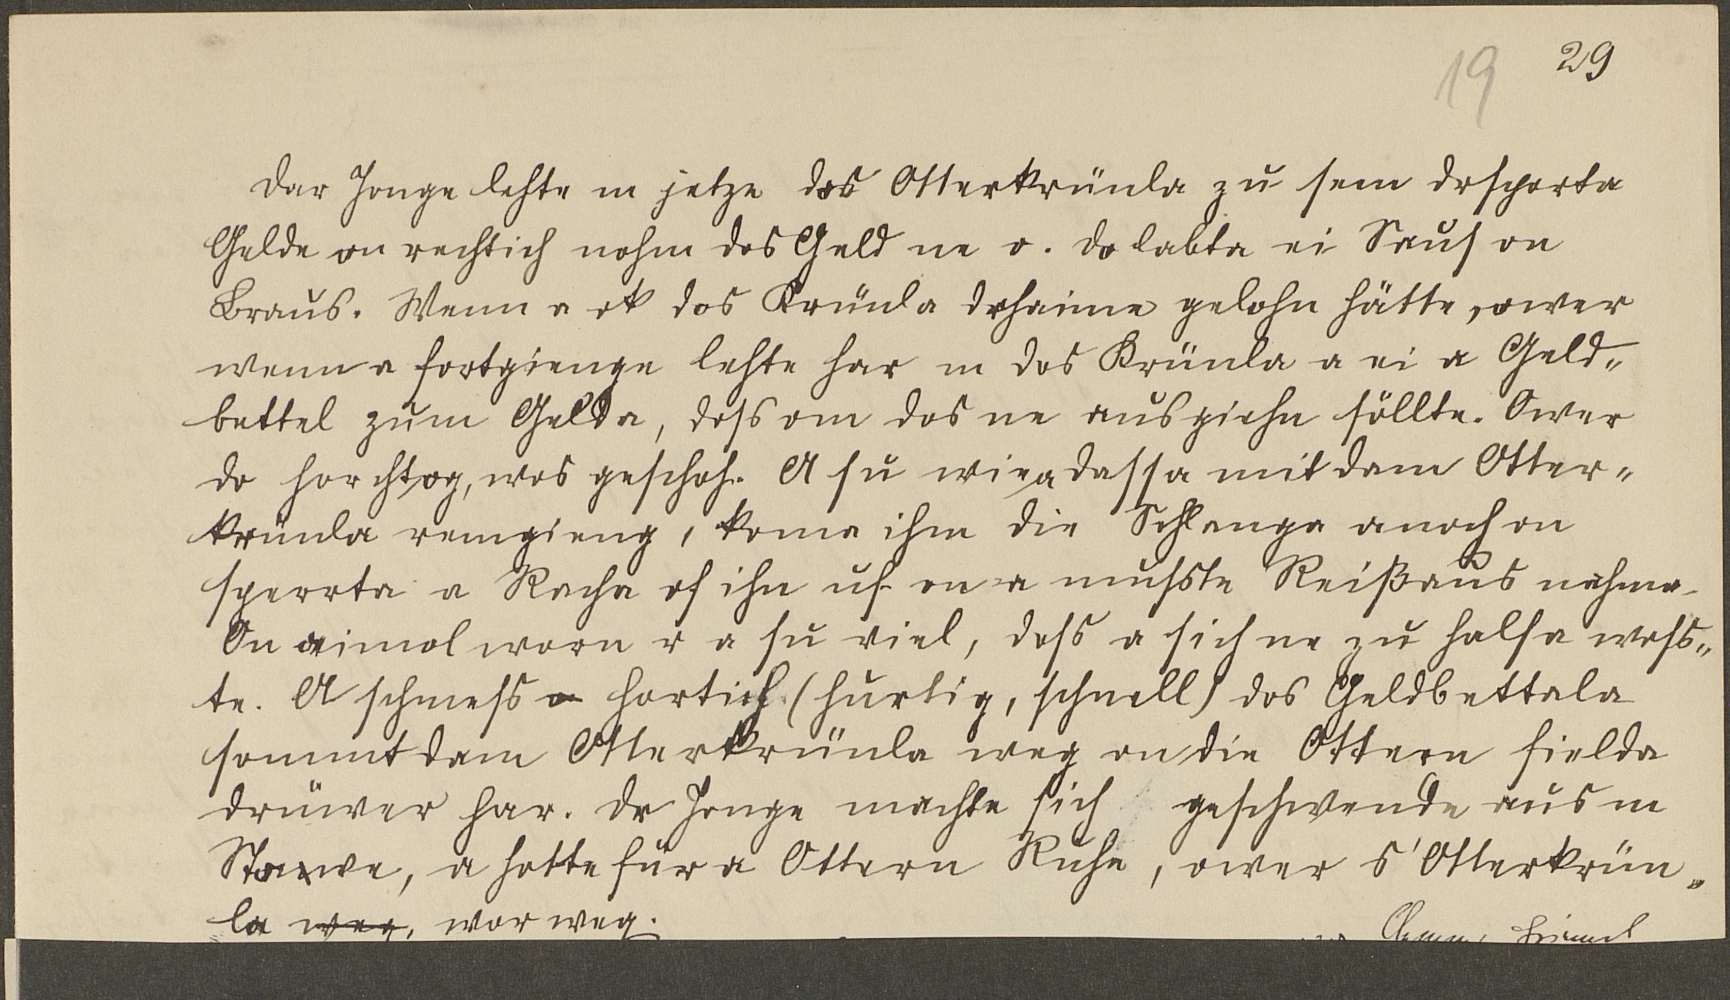 19 29
Dar Jonge lehte m jetze dos Otterkrünla zu sem drsporta
Gelde on rechtich nohm dos Geld ne o. Do labta ei Saus on
Braus. Wenn a ok dos Krünla drhaime gelohn hätte, ower
wenn a fortgienge lehte har m dos Krünla a ei a Geld„
bettel zum Gelda, doss om dos ne ausgiehn söllte. Ower
do horcht og, wos geschoh. A su wie a dassa mit dam Otter„
krünla remgieng, koma ihm die Schlanga a noch on
sperrta a Racha of ihn uf on a musste Reißaus nahma.
On aimol worn r a su viel, doss a sich ne zu halfa woss„
te. A schmess a hortich (hurtig, schnell) dos Geldbettala
sommt dam Otterkrünla weg on die Ottern fielda
drüwer har. Dr Jonge machte sich geschwende aus m
Stawe, a hotte für a Ottern Ruhe, ower s' Otterkrün„
la weg, wor weg.